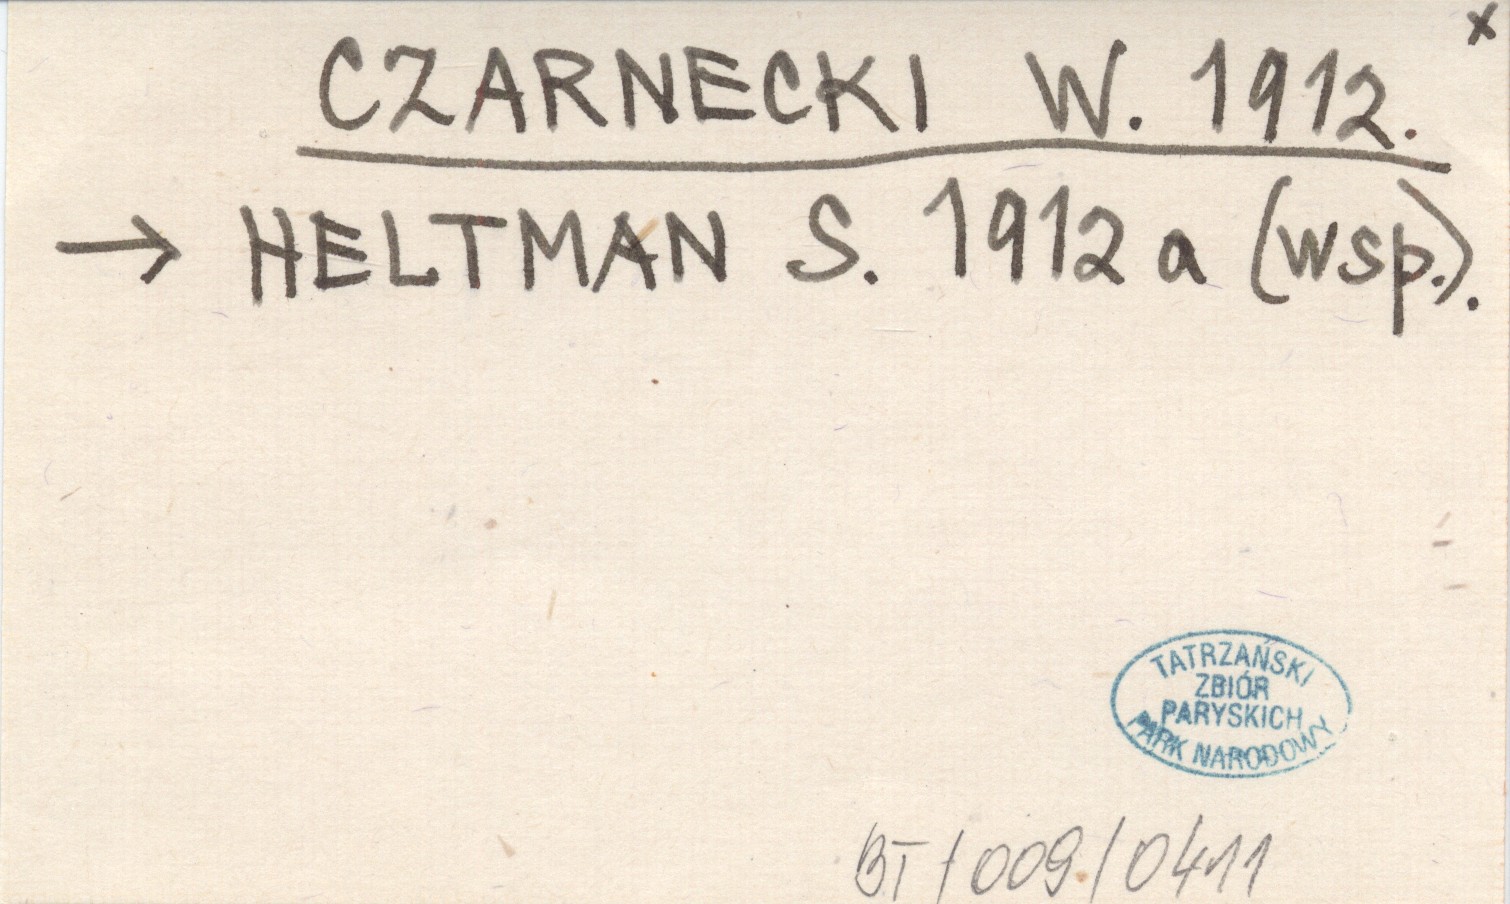 x
CZARNECKI W. 1912.
→ HELTMAN S. 1912 a (wsp.).
TATRZAŃSKI
ZBIÓR
PARYSKICH
PARK NARODOWY
BT/009/0411